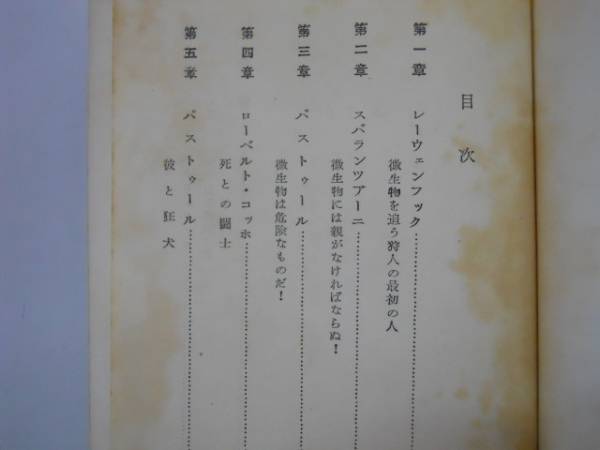 目次
第一章 レーウェンフック
微生物を追う狩人の最初の人
第二章 スパランツアーニ
微生物には親がなければならぬ！
第三章 パストゥール
微生物は危険なものだ！
第四章 ローベルト・コッホ
死との闘士
第五章 パストゥール
彼と狂犬